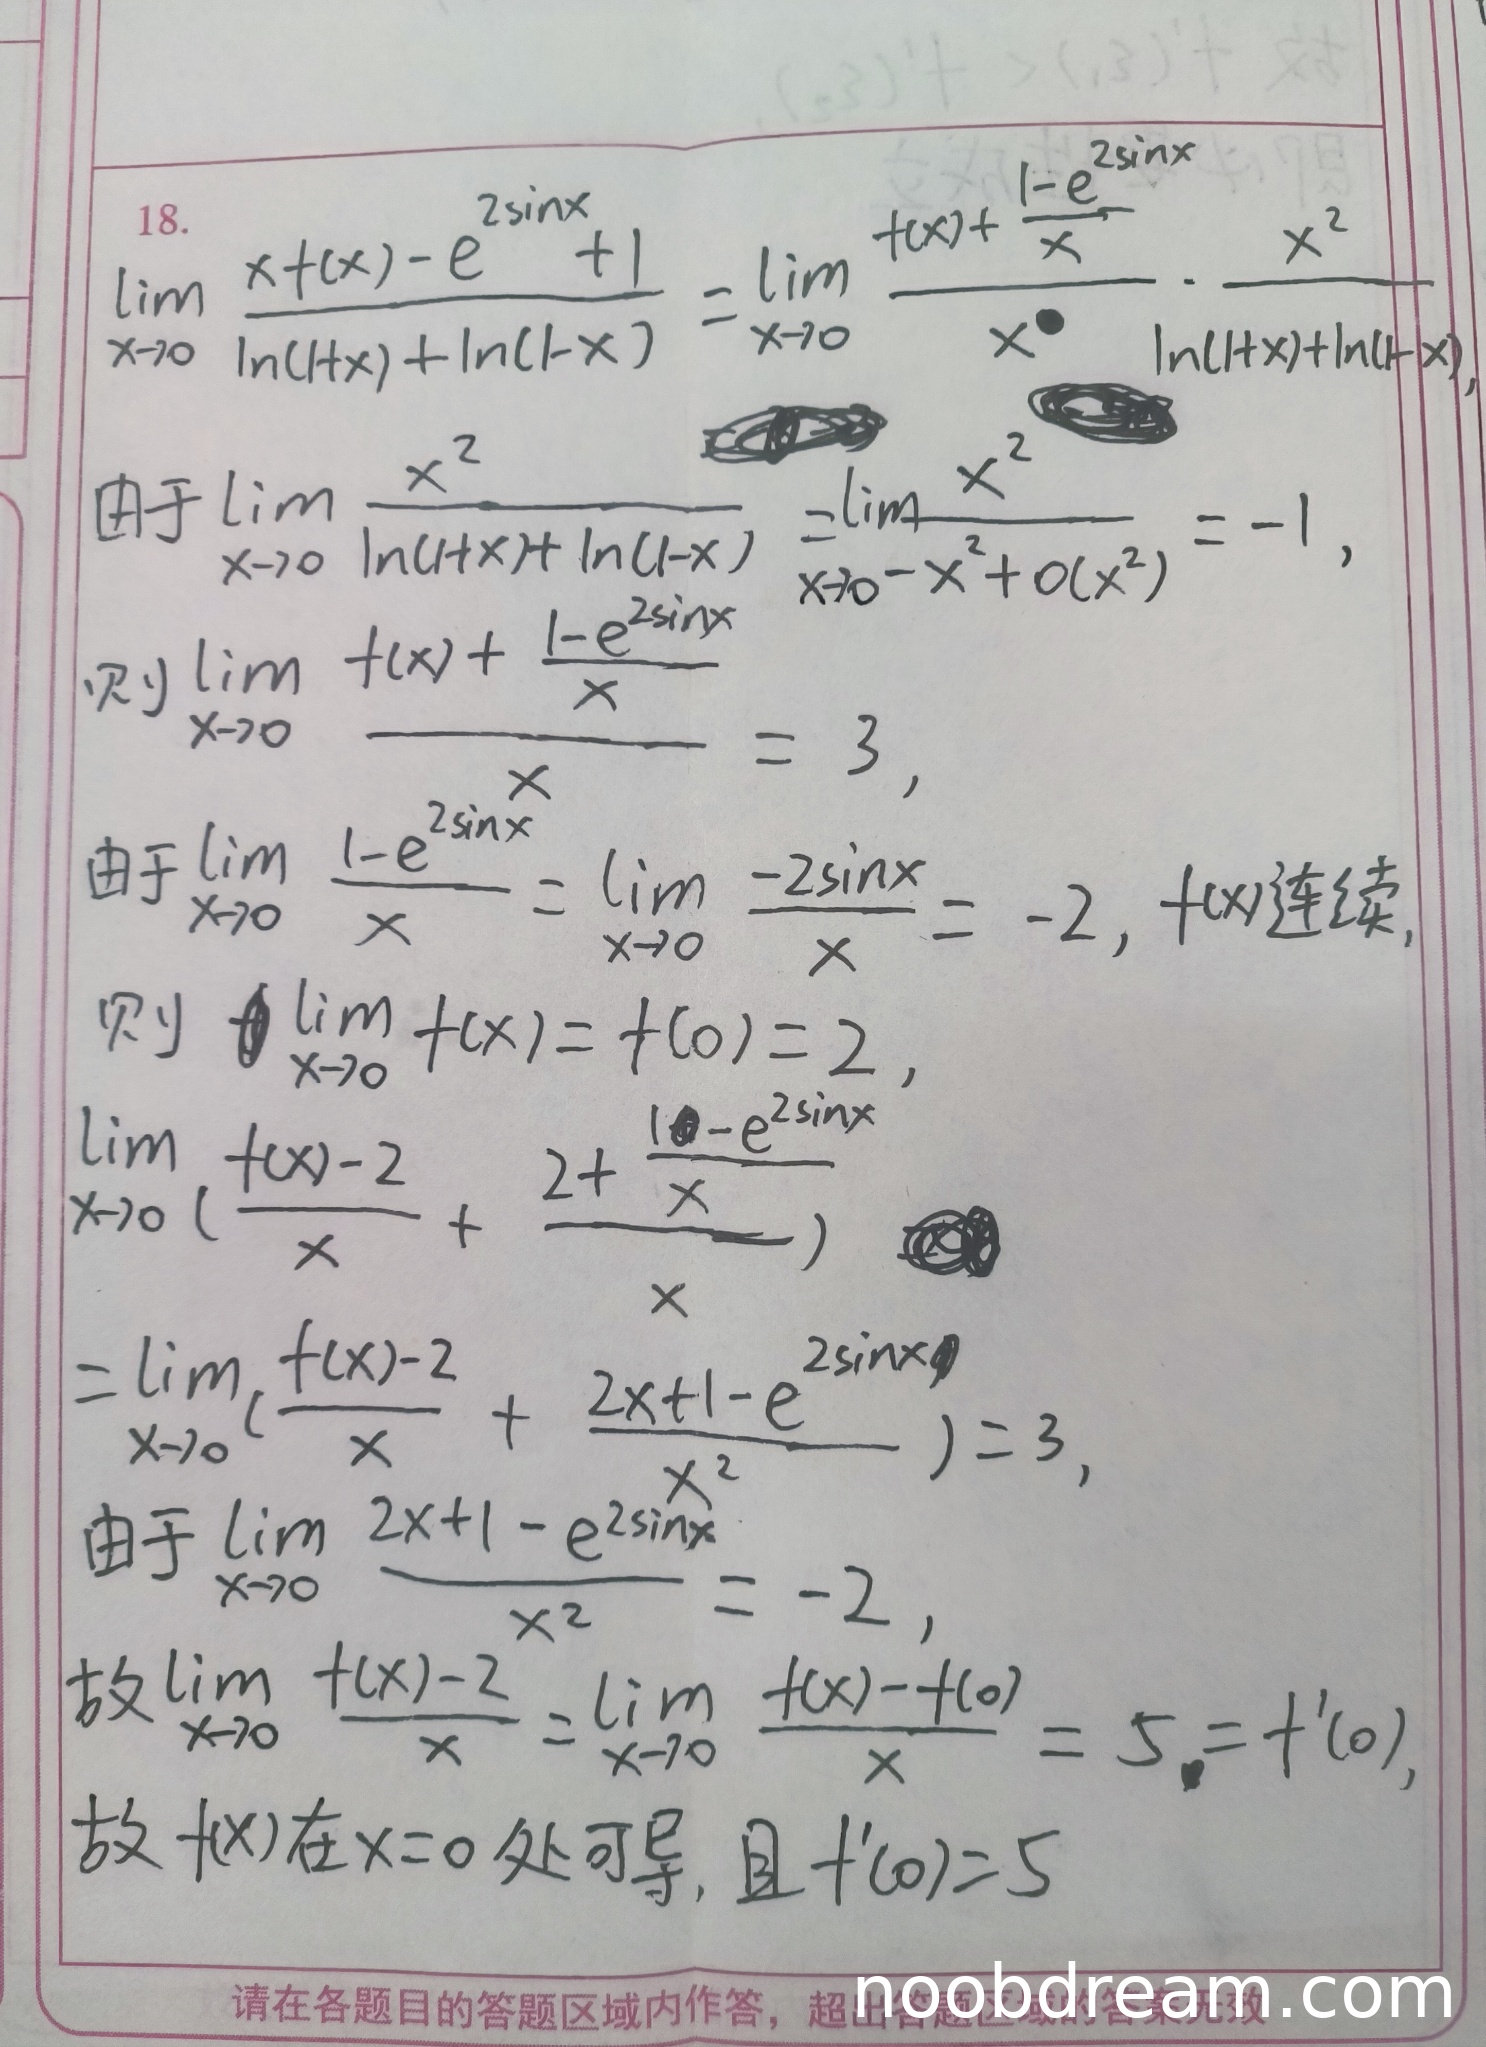 18.
lim x→0 (xf(x)-e^{2sinx}+1)/(ln(1+x)+ln(1-x)) = lim x→0 (f(x)+(1-e^{2sinx})/x)/x · x²/(ln(1+x)+ln(1-x)),
由于 lim x→0 x²/(ln(1+x)+ln(1-x)) = lim x→0 x²/(-x²+o(x²)) = -1,
则 lim x→0 (f(x)+(1-e^{2sinx})/x)/x = 3,
由于 lim x→0 (1-e^{2sinx})/x = lim x→0 (-2sinx)/x = -2, f(x)连续,
则 lim x→0 f(x) = f(0) = 2,
lim x→0 ((f(x)-2)/x + (2+(1-e^{2sinx})/x)/x)
= lim x→0 ((f(x)-2)/x + (2x+1-e^{2sinx})/x²) = 3,
由于 lim x→0 (2x+1-e^{2sinx})/x² = -2,
故 lim x→0 (f(x)-2)/x = lim x→0 (f(x)-f(0))/x = 5 = f'(0),
故 f(x)在x=0处可导, 且 f'(0)=5
请在各题目的答题区域内作答，超出答题区域的答案无效
noobdream.com